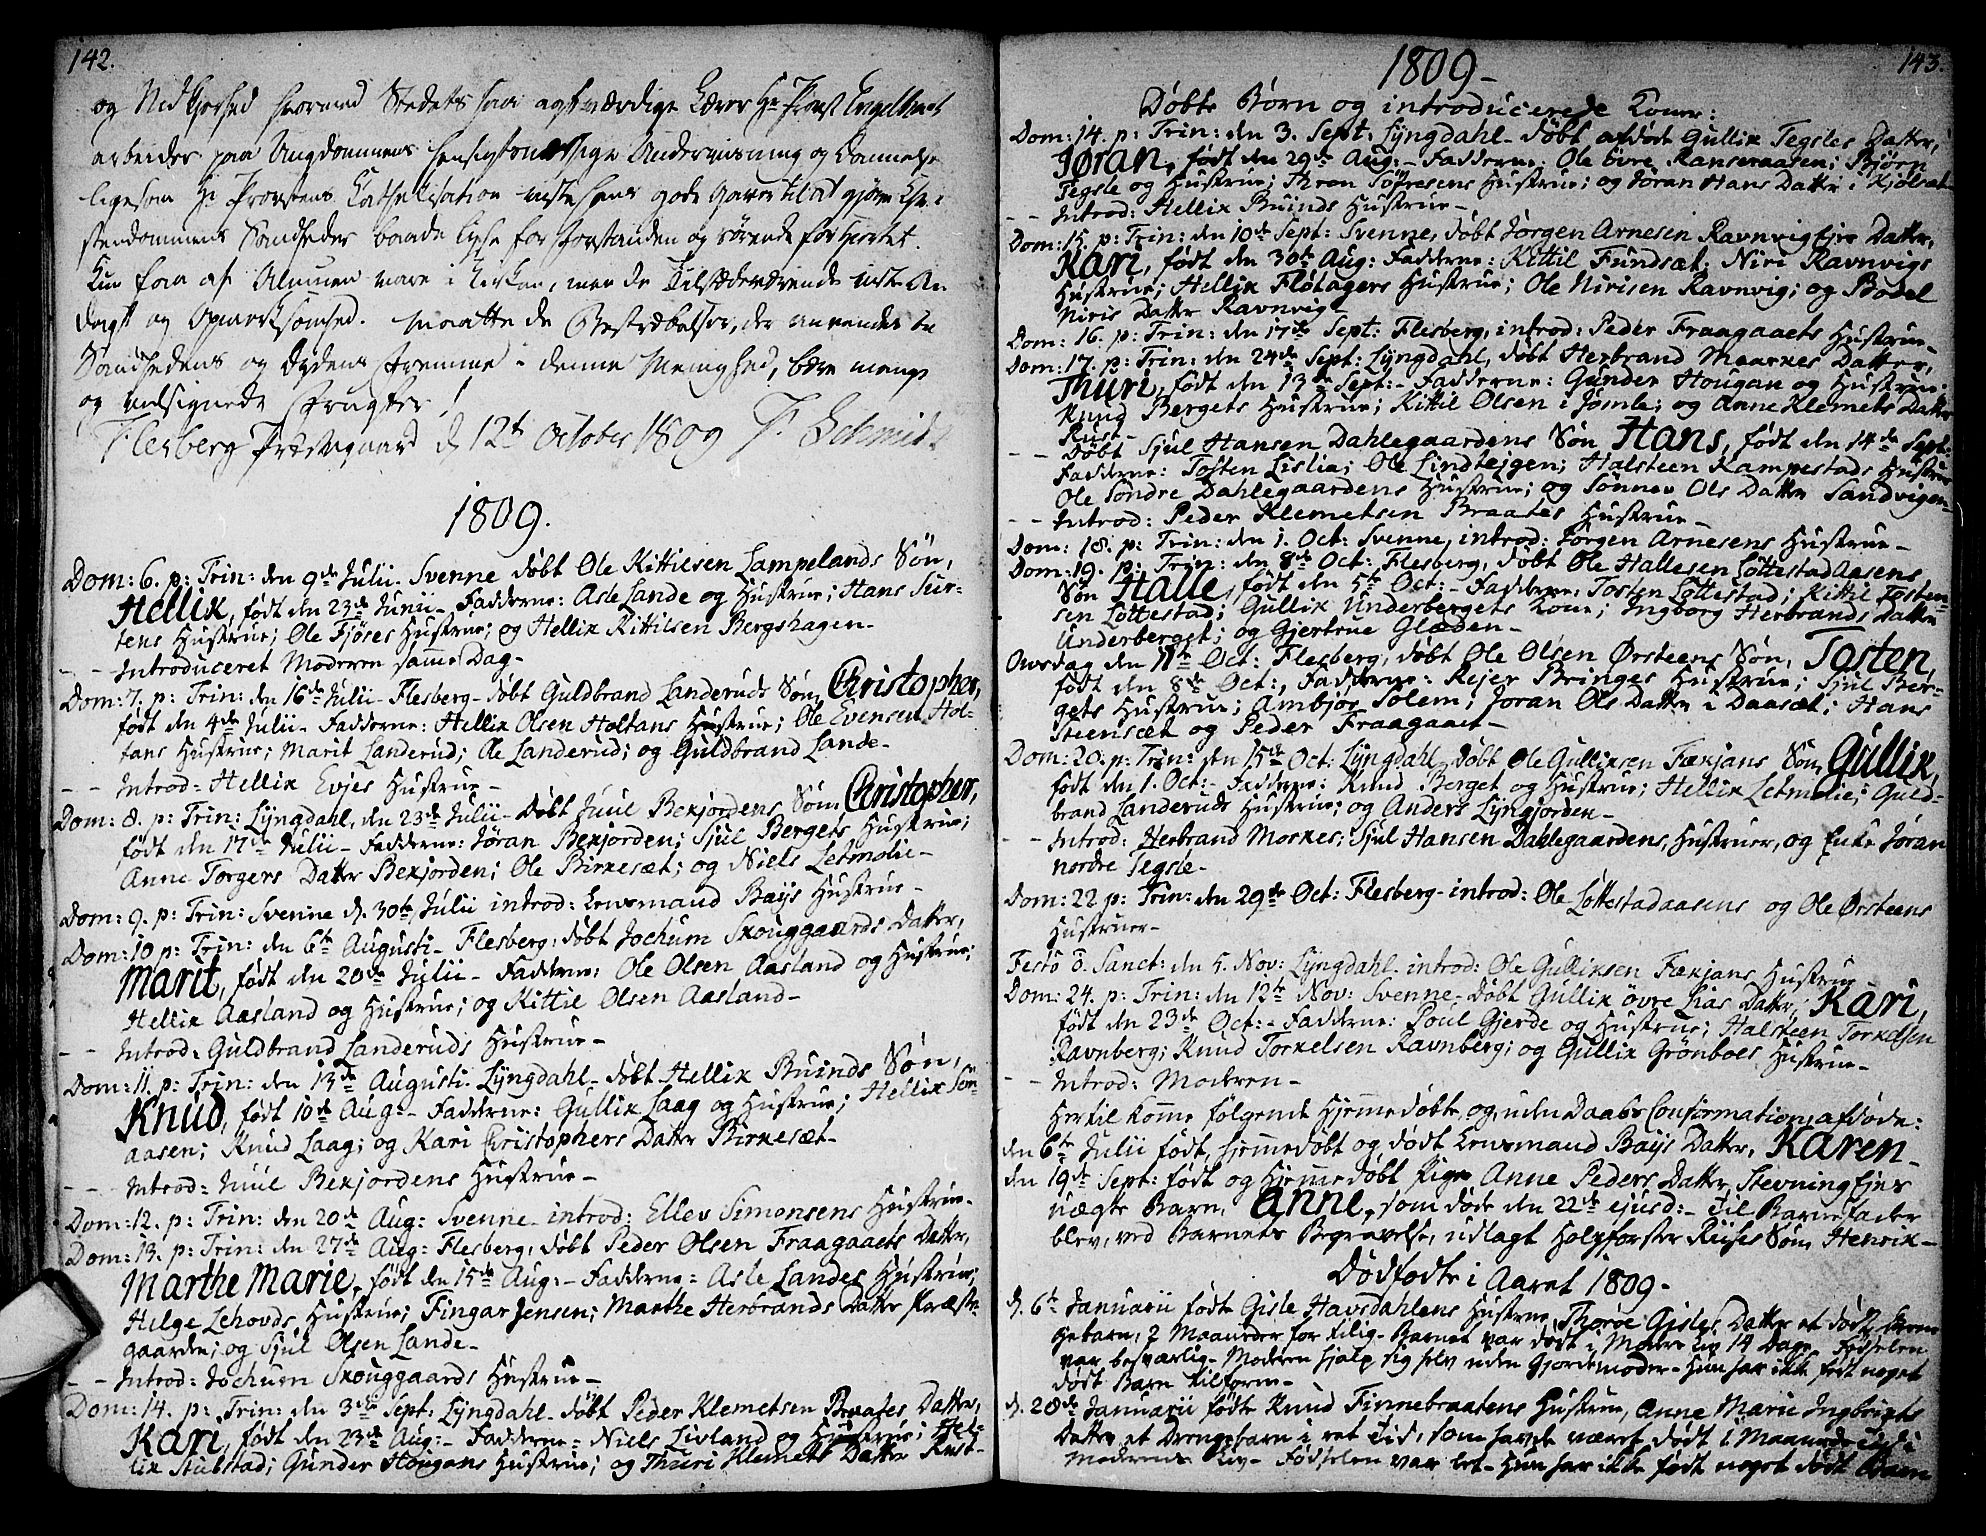 142.
og Nidkjerhed hvormed Stedets saa agtværdige Lærer Hr Provst Engelhart
arbeider paa Ungdommens hensigtsmæssige Underviisning og Dannelse
ligesom Hr Provstens Kathekisation viste hans gode Gaver til at gjøre Chri-
stendommens Sandheder baade lyse for Forstanden og rørende for Hjertet.
Kun faa af Almuen vare i Kirken, men de Tilstædeværende viste An-
dagt og Opmærksomhed. Maatte de Bestræbelser, der anvendes til
Sandhedens og Dydens Fremme i denne Menighed, bære mange
og velsignede Frugter!
Flesberg Præstegaard d 12te October 1809 F. Schmidt
1809.
Dom: 6. p: Trin: den 9de Julii- Svenne døbt Ole Kittilsen Lampelands Søn,
Hellik, født den 23de Junii- Fadderne: Asle Lande og Hustrue; Hans Jur-
tens Hustrue; Ole Fjøses Hustrue; og Hellik Kittilsen Bergshagen-
- - Introduceret Moderen samme Dag-
Dom: 7. p: Trin: den 16de Julii- Flesberg- døbt Guldbrand Landeruds Søn, Christopher,
født den 4de Julii- Fadderne: Hellik Olsen Holtans Hustrue; Ole Evensen Hol-
tans Hustrue; Marit Landerud; Ole Landerud; og Guldbrand Lande-
- - Introd: Hellik Evjes Hustrue-
Dom: 8. p: Trin: Lyngdahl, den 23de Julii- Døbt Juul Bekjordens Søn, Christopher,
født den 17de Julii- Fadderne: Jøran Bekjorden; Sjul Bergets Hustrue;
Anne Torgers Datter Bekjorden; Ole Birkesæt; og Niels Letmolie-
Dom: 9. p: Trin: Svenne d. 30te Julii introd: Lensmand Baijs Hustrue-
Dom: 10 p: Trin: den 6te Augusti- Flesberg: døbt Jochum Skouggaards Datter,
Marit, født den 20de Julii- Fadderne: Ole Olsen Aasland og Hustrue;
Hellik Aasland og Hustrue; og Kittil Olsen Aasland-
- - Introd: Guldbrand Landeruds Hustrue-
Dom: 11. p: Trin: den 13de Augusti- Lyngdahl- døbt Hellik Buinds Søn,
Knud, født 10de Aug:- Fadderne: Gullik Laag og Hustrue; Hellik Søn-
aasen; Knud Laag; og Kari Christophers Datter Birkesæt-
- - Introd: Juul Bekjordens Hustrue-
Dom: 12. p: Trin: den 20de Aug: Svenne- introd: Ellev Simonsens Hustrue-
Dom: 13. p: Trin: den 27de Aug: Flesberg, døbt Peder Olsen Fraagaaets Datter,
Marthe Marie, født den 15de Aug:- Fadderne: Asle Landes Hustrue;
Helge Lehovds Hustrue; Fingar Jensen; Marthe Herbrands Datter Præste-
gaarden; og Sjul Olsen Lande-
- - Introd: Jochum Skouggaards Hustrue-
Dom: 14. p: Trin: den 3die Sept: Lyngdahl- døbt Peder Klemetsen Braates Datter,
Kari, født den 23de Aug:- Fadderne: Niels Livland og Hustrue; Hel-
lik Stubstad; Gunder Hougans Hustrue; og Thuri Klemets Datter Rust-
143.
1809-
Døbte Børn og introducerede Koner:
Dom: 14. p: Trin: den 3. Sept: Lyngdahl- døbt afdøde Gullik Tegsles Datter,
Jøran, født den 29de Aug:- Fadderne: Ole Øvre Ranseraasen; Bjørn
Tegsle og Hustrue; Thron Søfrensens Hustrue; og Jøran Hans Datter i Kjølsæt
- - Introd: Hellik Buinds Hustrue-
Dom: 15. p: Trin: den 10de Sept: Svenne, døbt Jørgen Arnesen Ravnvig Ejes Datter,
Kari, født den 30te Aug: Fadderne: Kittil Fundsæt; Niri Ravnvigs
Hustrue; Hellik Fløtagers Hustrue; Ole Nirisen Ravnvig; og Bodel
Niris Datter Ravnvig-
Dom: 16. p: Trin: den 17de Sept: Flesberg, introd: Peder Fraagaaets Hustrue-
Dom: 17. p: Trin: den 24de Sept: Lyngdahl, døbt Herbrand Moerkes Datter,
Thuri, født den 13de Sept:- Fadderne: Gunder Hougan og Hustrue;
Knud Bergets Hustrue; Kittil Olsen i Jømle; og Anne Klemets Datter
Rust-
- - Døbt Sjul Hansen Dahlegaardens Søn Hans, født den 14de Sept:
Fadderne: Tosten Lislia; Ole Lindtejgen; Halsteen Kampestads Hustrue
Ole Søndre Dahlegaardens Hustrue; og Sønnev Ols Datter Sandvigen-
- - Introd: Peder Klemetsen Braates Hustrue-
Dom: 18. p: Trin: den 1. Oct: Svenne, introd: Jørgen Arnesens Hustrue-
Dom: 19. p: Trin: den 8de Oct: Flesberg, døbt Ole Hallesen Løttestadaasens
Søn Halle, født den 5te Oct:- Fadderne: Tosten Løttestad; Kittil Tosten-
sen Løttestad; Gullik Underbergets Kone; Ingborg Herbrands Datter
Underberget; og Gjertrue Glæden-
Onsdag den 11te Oct: Flesberg, døbt Ole Olsen Ørsteens Søn, Tosten,
født den 8de Oct:, Fadderne: Rejer Bringes Hustrue; Sjul Ber-
gets Hustrue; Ambjør Solem; Jøran Ols Datter i Daasæt; Hans
Steensæt og Peder Fraagaaet-
Dom: 20. p: Trin: den 15de Oct: Lyngdahl, døbt Ole Gulliksen Fækjans Søn, Gullik,
født den 1. Oct:- Fadderne: Knud Berget og Hustrue; Hellik Letmolie; Guld-
brand Landeruds Hustrue; og Anders Lyngjorden-
- - Introd: Herbrand Moerkes; Sjul Hansen Dahlegaardens, Hustruer, og Enke Jøran
nordre Tegsle-
Dom: 22 p: Trin: den 29de Oct: Flesberg- introd: Ole Løttestadaasens og Ole Ørsteens
Hustruer-
Festo O. Sanct: den 5. Nov: Lyngdahl- introd: Ole Gulliksen Fækjans Hustrue
Dom: 24. p: Trin: den 12te Nov: Svenne- døbt Gullik øvre Lias Datter, Kari,
født den 23de Oct:- Fadderne: Poul Gjerde og Hustrue; Halsteen Torkelsen
Ravnberg; Knud Torkelsen Ravnberg; og Gullik Grønboes Hustrue-
- - Introd: Moderen-
Hertil komme følgende hjemmedøbte, og, uden Daabs Confirmation, afdøde:
den 6te Julii født, hjemmedøbt og død Lensmand Baijs Datter, Karen-
den 19de Sept: født og hjemmedøbt Pige Anne Peders Datter Stevning Ejes
uægte Barn, Anne, som døde den 22de ejusd:- Til Barnefader
blev, ved Barnets Begravelse, udlagt Holzførster Riises Søn, Henrik-
Dødfødte i Aaret 1809-
d. 6te Januarii fødte Gisle Havsdahlens Hustrue Thorøe Gisles Datter et dødt Dren-
gebarn, 2 Maaneder for tilig- Barnet var dødt i Moders Liv 14 Dage- Fødselen
var besværlig- Moderen hjalp sig selv uden Gjordemoder- Hun har ikke født noget
dødt Barn tilforn-
d. 28de Januarii fødte Knud Finnebraatens Hustrue, Anne Marie Ingbrigts
Datter et Drengebarn i ret Tid, som havde været dødt i Maaneds Tid i
Moderens Liv- Fødselen var let- Hun har ikke født noget dødt Barn